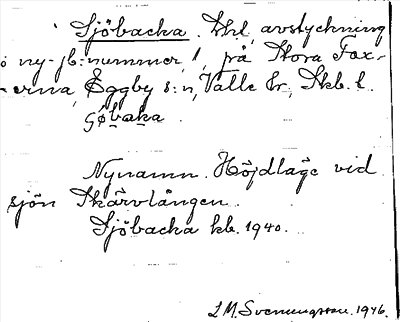 Sjöbacka. Lht, avstyckning
ö ny-jb:nummer, 1, på Stora Fox-
erna, Eggby s:n, Valle hr, Skb. l.
Nynamn. Höjdläge vid
sjön Skärvlången.
Sjöbacka kb. 1940.
L M. Svenungsson. 1946.